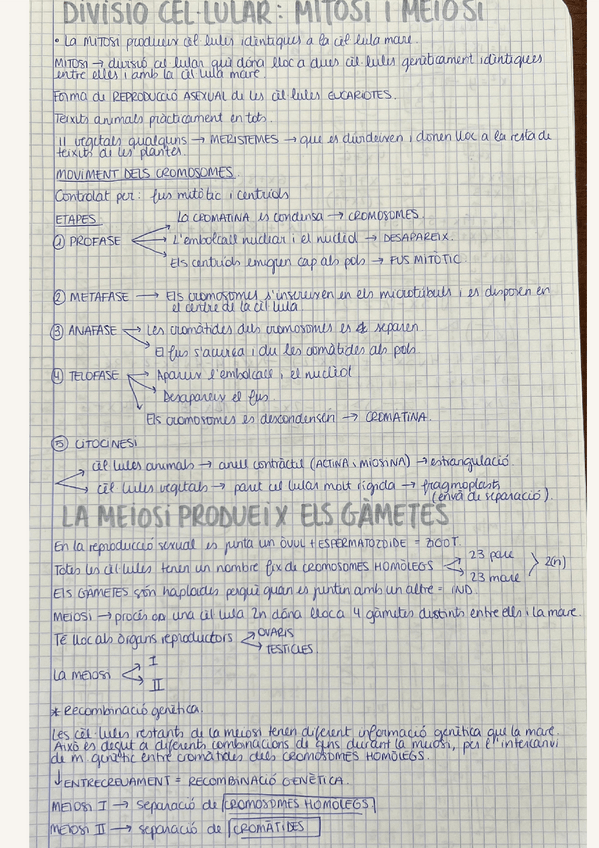 DIVISIÓ CEL·LULAR: MITOSI I MEIOSI
• La MITOSI produeix cèl·lules idèntiques a la cèl·lula mare.
MITOSI → divisió cel·lular què dóna lloc a dues cèl·lules genèticament idèntiques
entre elles i amb la cèl·lula mare.
Forma de REPRODUCCIÓ ASEXUAL de les cèl·lules EUCARIOTES.
Teixits animals pràcticament en tots.
II vegetals qualguns → MERISTEMES → que es divideixen i donen lloc a la resta de
teixits de les plantes.
MOVIMENT DELS CROMOSOMES
Controlat per: fus mitòtic i centríols
ETAPES
La CROMATINA es condensa → CROMOSOMES.
① PROFASE → L'embolcall nuclear i el nuclèol → DESAPAREIX.
Els centríols emigren cap als pols → FUS MITÒTIC
② METAFASE → Els cromosomes s'inscriuen en els microtúbuls i es disposen en
el centre de la cèl·lula
③ ANAFASE → Les cromàtides dels cromosomes es separen
El fus s'acurça i du les cromàtides als pols.
④ TELOFASE → Apareix l'embolcall i el nuclèol
Desapareix el fus.
Els cromosomes es descondensen → CROMATINA.
⑤ CITOCINESI
cèl·lules animals → anell contràctil (ACTINA i MIOSINA) → estrangulació.
cèl·lules vegetals → paret cel·lular molt rígida → fragmoplasts
(envà de separació).
LA MEIOSI PRODUEIX ELS GÀMETES
En la reproducció sexual es junta un ÒVUL + ESPERMATOZOIDE = ZIGOT.
Totes les cèl·lules tenen un nombre fix de CROMOSOMES HOMÒLEGS
23 pare
23 mare
2(n)
Els GÀMETES són haploides perquè quan es juntin amb un altre = IND.
MEIOSI → procés on una cèl·lula 2n dóna lloc a 4 gàmetes distints entre ells i la mare.
Té lloc als òrgans reproductors
OVARIS
TESTICLES
La MEIOSI
I
II
* Recombinació genètica.
Les cèl·lules restants de la meiosi tenen diferent informació genètica que la mare.
Això és degut a diferents combinacions de gens durant la meiosi, per l'intercanvi
de m. genètic entre cromàtides dels CROMOSOMES HOMÒLEGS.
↓ ENTRECREUAMENT = RECOMBINACIÓ GENÈTICA.
MEIOSI I → separació de CROMOSOMES HOMÒLEGS
MEIOSI II → separació de CROMÀTIDES